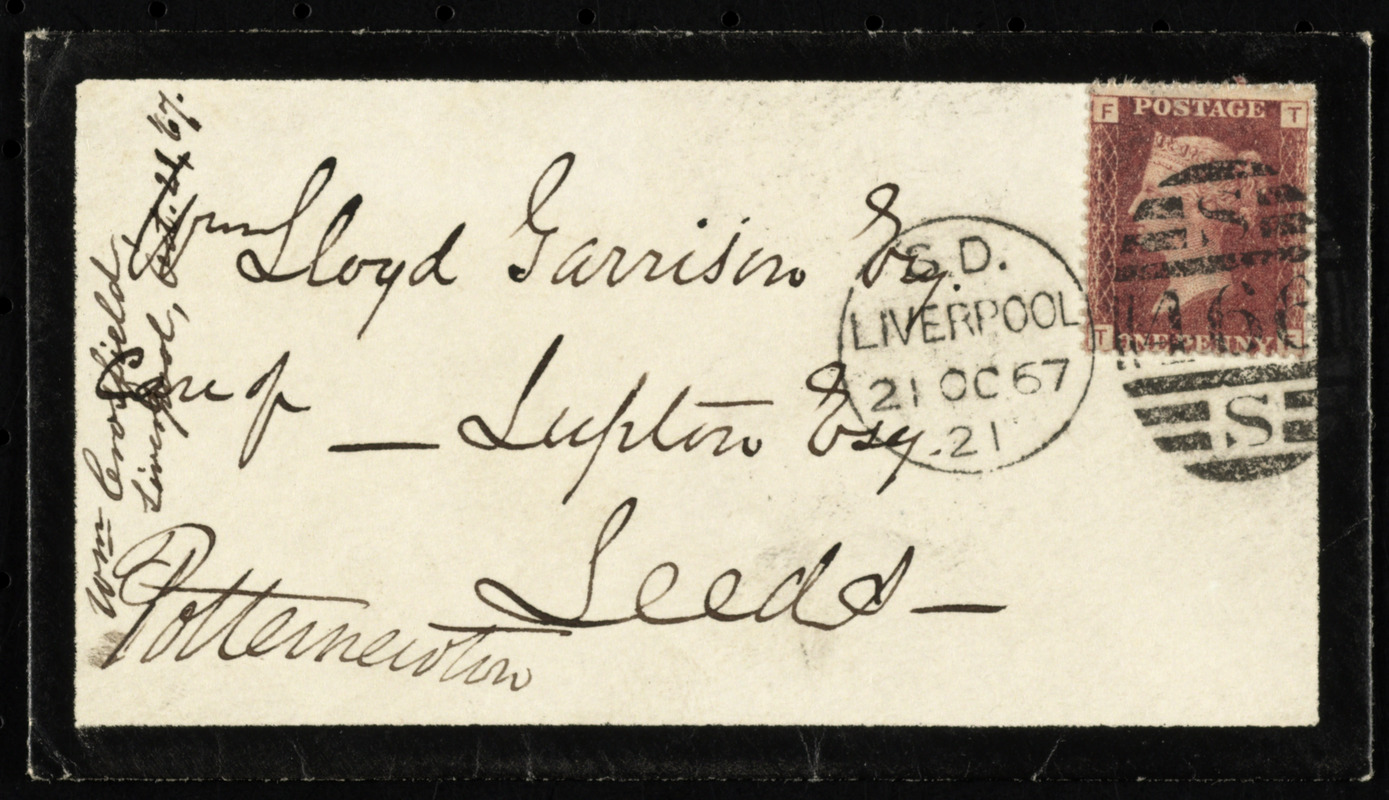 Wm Lloyd Garrison Esq.
Care of — Lupton Esq.
Leeds —
Potternewton
Wm Crosfield,
Liverpool, Oct. 21, 67.
S.D.
LIVERPOOL
21 OC 67
21
F POSTAGE T
T ONE PENNY F
S
466
S